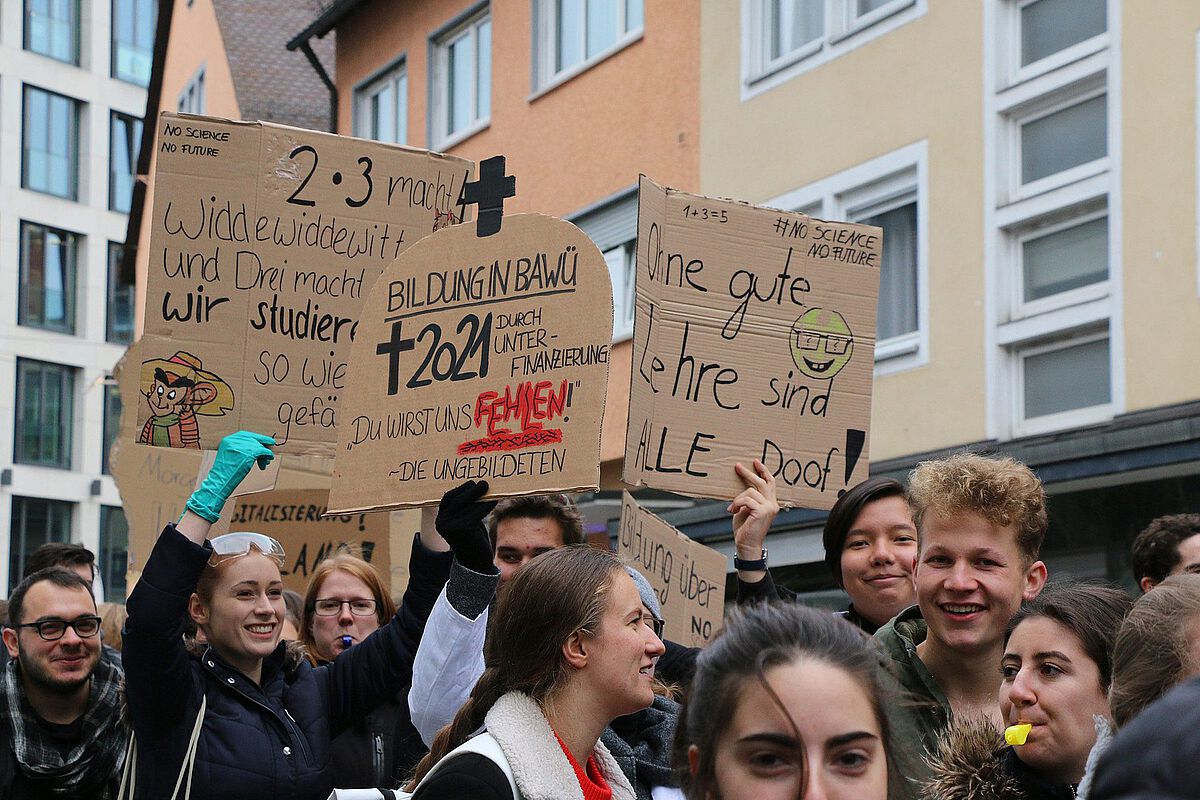 NO SCIENCE
NO FUTURE
2·3 macht
Widdewiddewitt
und Drei macht
wir studieren
so wie
gefä
BILDUNG IN BAWÜ
✝2021 DURCH
UNTER-
FINANZIERUNG
"DU WIRST UNS FEHLEN!"
~DIE UNGEBILDETEN
1+3=5
#NO SCIENCE
NO FUTURE
Ohne gute
Lehre sind
ALLE Doof!
Bildung über
NO